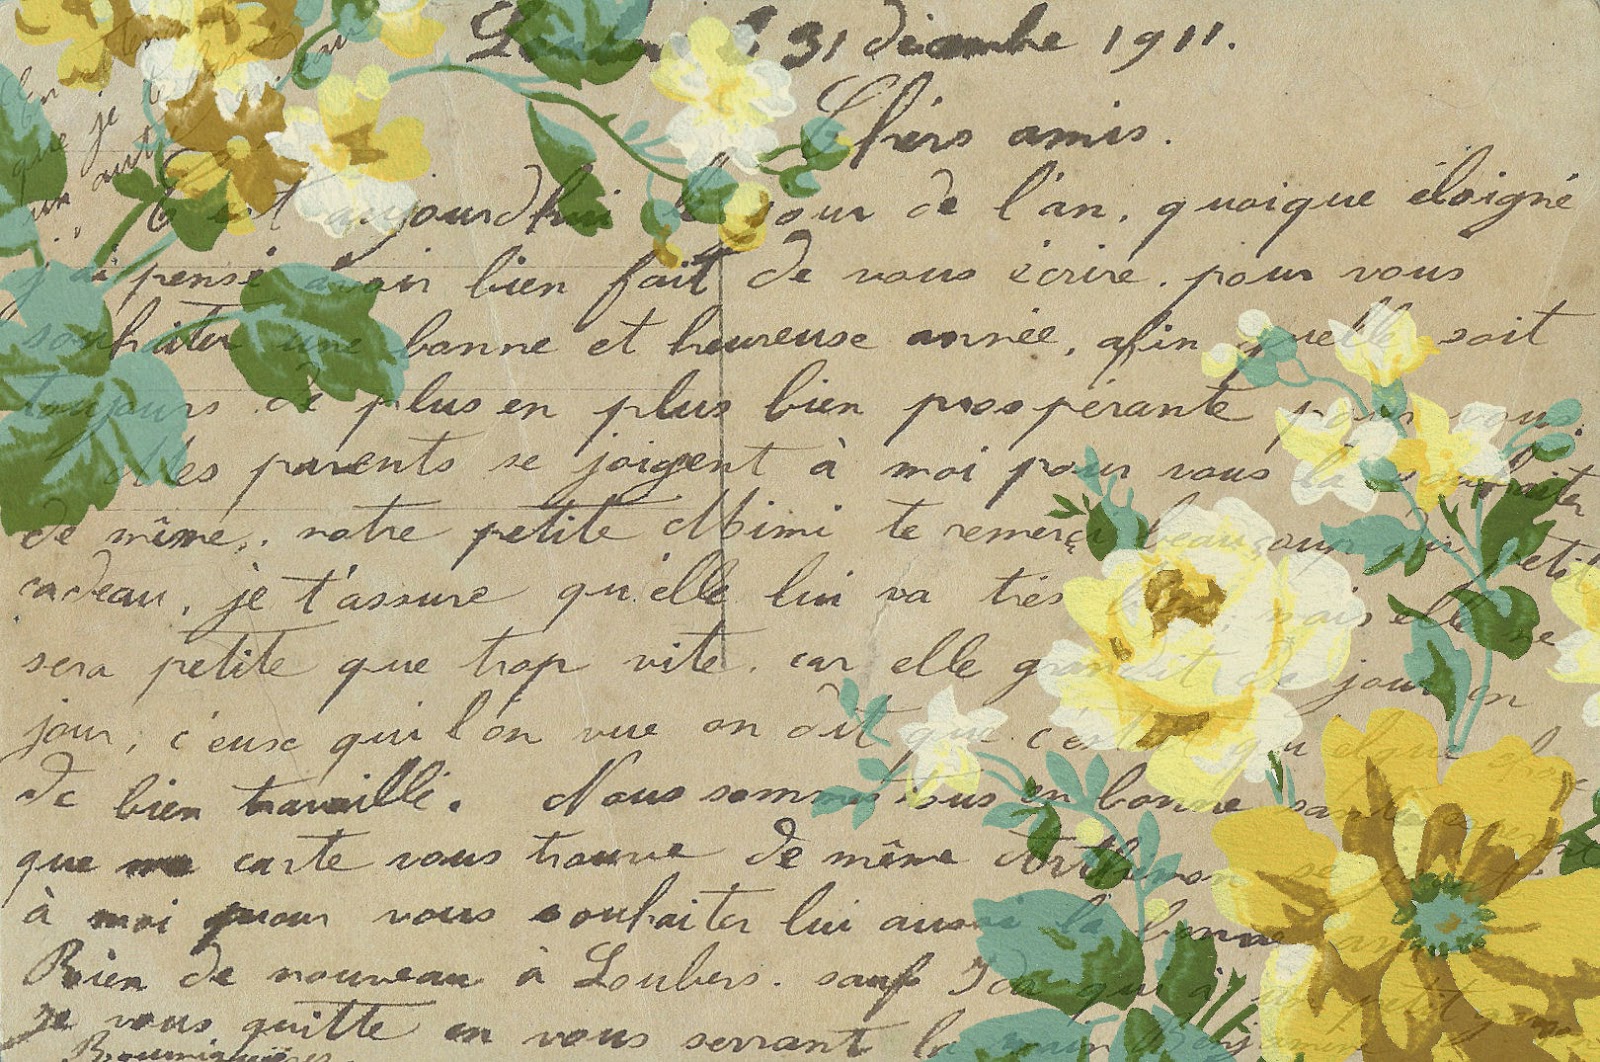 31 décembre 1911.
Chers amis.
C'est aujourdhui le jour de l'an, quoique éloigné
j'ai pensé avoir bien fait de vous écrire. pour vous
souhaiter une bonne et heureuse année, afin quelle soit
toujours de plus en plus bien prospérante pour vous.
Mes parents se joigent à moi pour vous la souhaiter
de même,. notre petite Mimi te remerçi beaucoup du petit
cadeau, je t'assure qu'elle lui va très bien; mais elle ne
sera petite que trop vite. car elle grandit de jour en
jour, c'eusc qui l'on vue on dit que c'était quelque chose
de bien travaillé. Nous sommes tous en bonne santé
que ma carte vous trouve de même se
à moi pour vous souhaiter lui aussi la bonne année
Rien de nouveau à Loubers. sauf Ida qui à un petit
Je vous quitte en vous serrant la main
En
que je
un autre